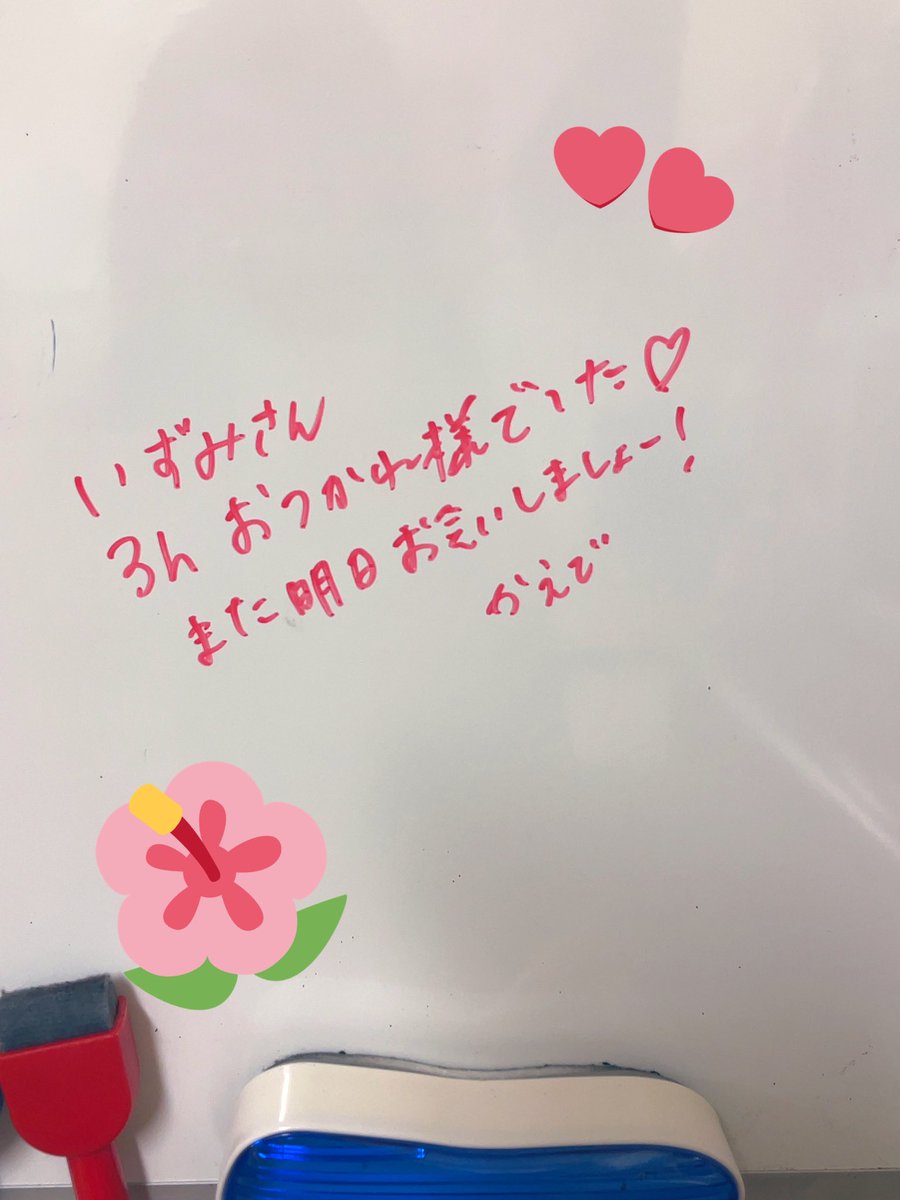 いずみさん
3h おつかれ様でした♡
また明日お会いしましょー!
かえで